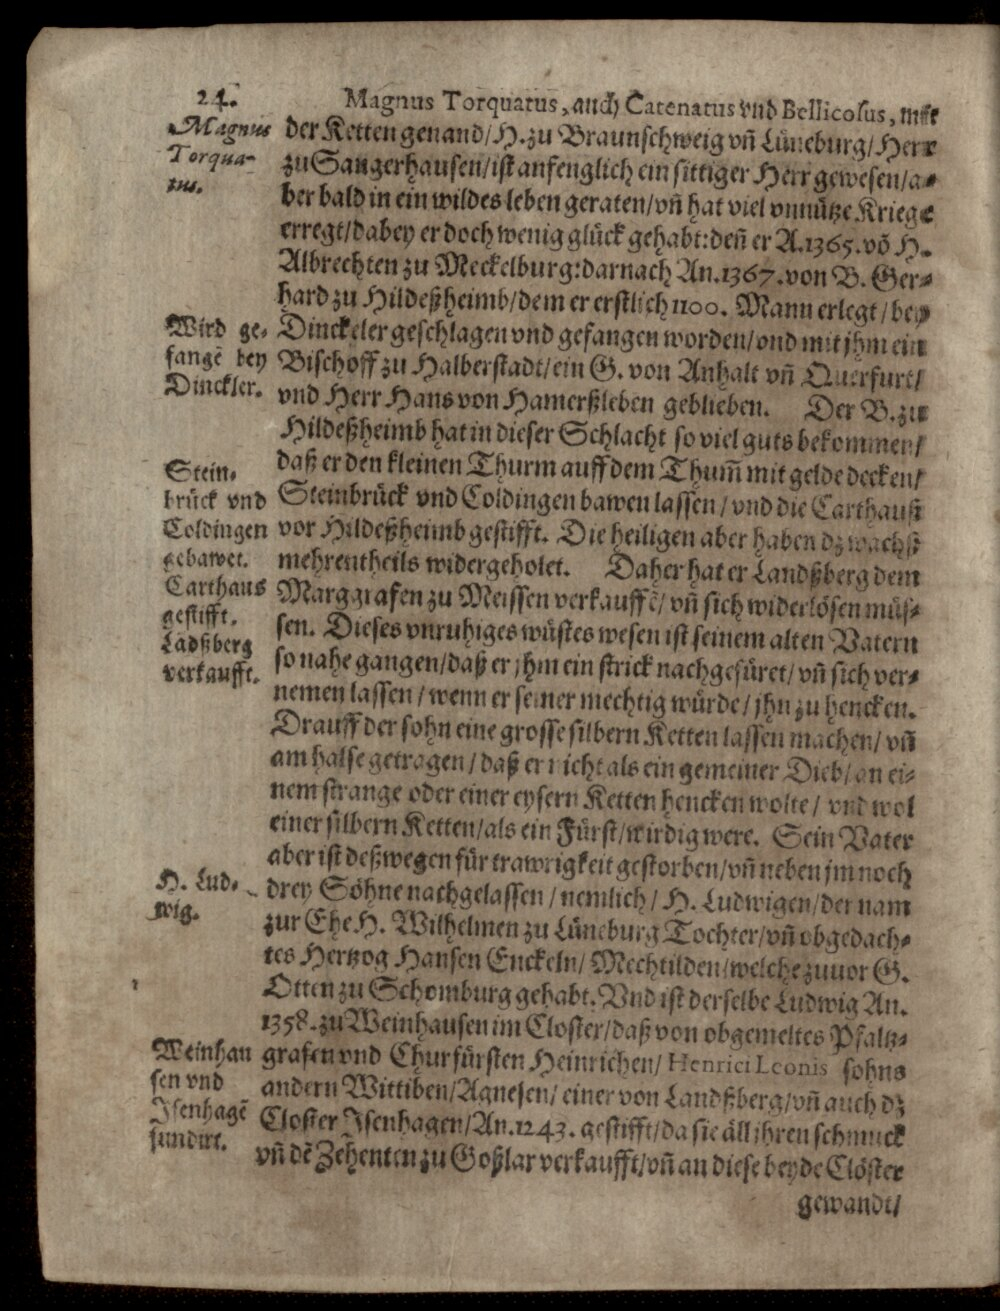 24.
Magnus Torquatus, auch Catenatus vnd Bellicosus, mitt
Magnus
Torqua-
tus.
der Ketten genand/ H. zu Braunschweig vñ Lüneburg/ Herr
zu Sangerhausen/ ist anfenglich ein sittiger Herr gewesen/ a-
ber bald in ein wildes leben geraten/ vñ hat viel vnnütze Kriege
erregt/ dabey er doch wenig glück gehabt: deñ er A. 1365. võ H.
Albrechten zu Meckelburg: darnach An. 1367. von B. Ger-
hard zu Hildeßheimb/ dem er erstlich 1100. Mann erlegt/ bey
Wird ge-
fangẽ bey
Dinckler.
Dinckeler geschlagen vnd gefangen worden/ vnd mit jhm ein
Bischoff zu Halberstadt/ ein G. von Anhalt vñ Querfurt/
vnd Herr Hans von Hamerßleben geblieben. Der B. zu
Hildeßheimb hat in dieser Schlacht so viel guts bekommen/
daß er den kleinen Thurm auff dem Thum̃ mit gelde decken/
Stein-
brück vnd
Coldingen
gebawet.
Carthaus
gestifft.
Lãdßberg
verkaufft.
Steinbrück vnd Coldingen bawen lassen/ vnd die Carthauß
vor Hildeßheimb gestifft. Die heiligen aber haben dz wachß
mehrentheils widergeholet. Daher hat er Landßberg dem
Marggrafen zu Meissen verkauffẽ/ vñ sich widerlösen müs-
sen. Dieses vnruhiges wüstes wesen ist seinem alten Vatern
so nahe gangen/ daß er jhm ein strick nachgefüret/ vñ sich ver-
nemen lassen/ wenn er seiner mechtig würde/ jhn zu hencken.
Drauff der sohn eine grosse silbern Ketten lassen machen/ vñ
am halse getragen/ daß er nicht als ein gemeiner Dieb/ an ei-
nem strange oder einer eysern Ketten hencken wolte/ vnd wol
einer silbern Ketten/ als ein Fürst/ wirdig were. Sein Vater
aber ist deßwegen für trawrigkeit gestorben/ vñ neben jm noch
H. Lud-
wig.
drey Söhne nachgelassen/ nemlich/ H. Ludwigen/ der nam
zur Ehe H. Wilhelmen zu Lüneburg Tochter/ vñ obgedach-
tes Hertzog Hansen Enckeln/ Mechtilden/ welche zuuor G.
Otten zu Schomburg gehabt. Vnd ist derselbe Ludwig An.
1358. zu Weinhausen im Closter/ daß von obgemeltes Pfaltz-
Weinhau
sen vnd
Isenhagẽ
fundirt.
grafen vnd Churfürsten Heinrichen/ Henrici Leonis sohns
andern Wittiben/ Agnesen/ einer von Landßberg/ vñ auch dz
Closter Isenhagen/ An. 1243. gestifft/ da sie all jhren schmuck
vñ dẽ Zehenten zu Goßlar verkaufft/ vñ an diese beyde Clöster
gewandt/